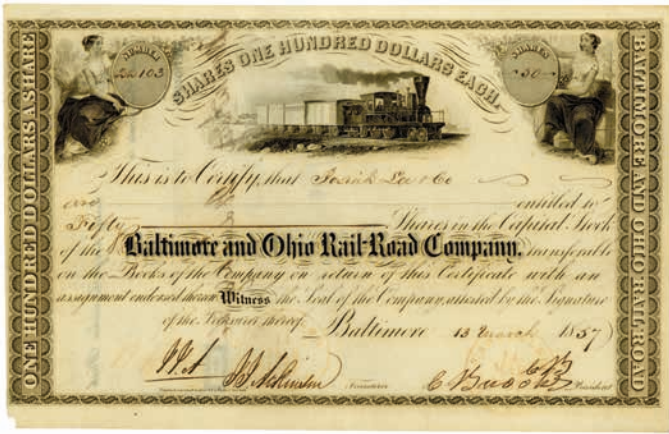 NUMBER
103
SHARES ONE HUNDRED DOLLARS EACH.
SHARES
50
ONE HUNDRED DOLLARS A SHARE
BALTIMORE AND OHIO RAIL-ROAD
This is to Certify, that Josiah Lee & Co
are entitled to
Fifty Shares in the Capital Stock
of the Baltimore and Ohio Rail-Road Company, transferable
on the Books of the Company on return of this Certificate with an
assignment endorsed thereon Witness the Seal of the Company, attested by the Signature
of the Treasurer thereof. Baltimore 13 March 1857
Treasurer
President